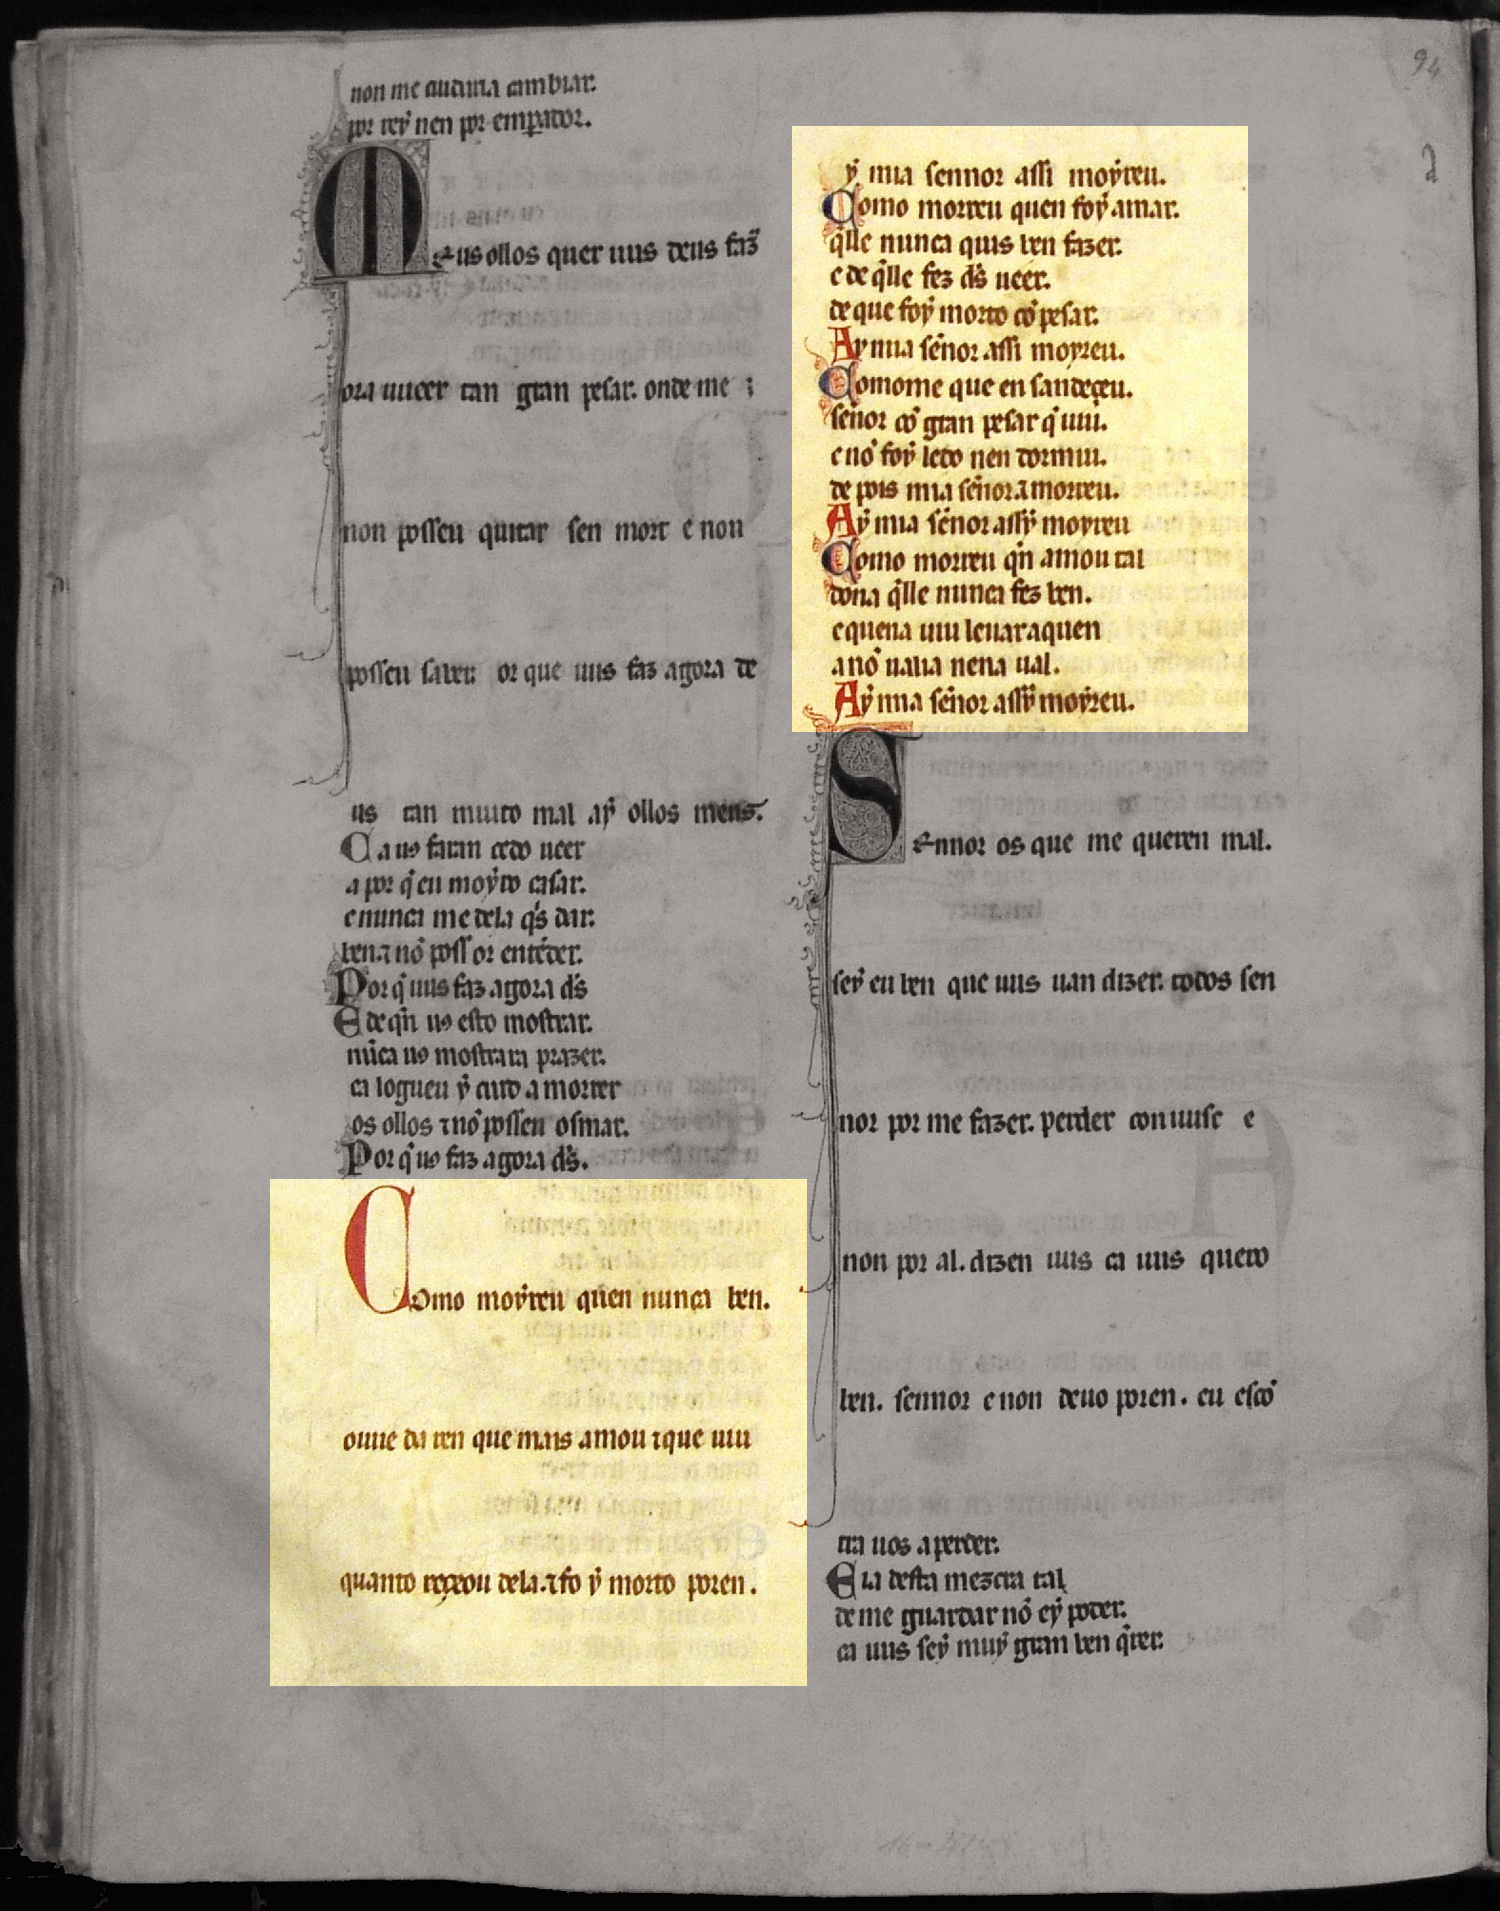 94
non me cuidaria cambiar.
por reẏ nen por emꝑador.
Meus ollos quer uus deus faz̃
ora uueer tan gran pesar. onde me
non posseu quitar sen mort e non
posseu saber. or que uus faz agora de
us tan muito mal aẏ ollos meus.
Ca uꝯ faran cedo ueer
a por q̇ eu moẏro casar.
e nunca me dela q̇s dar.
ben. ⁊ nõ poss or entẽder.
Por q̇ uus faz agora ds̃
E de qñ uꝯ esto mostrar.
nũca uꝯ mostrara prazer.
ca logueu ẏ cuido a morrer
os ollos ⁊ nõ posseu osmar.
Por q̇ uꝯ faz agora ds̃.
Como moẏreu quen nunca ben.
ouue da ren que mais amou ⁊ que uiu
quanto reçeou dela. ⁊ fo ẏ morto poren.
ẏ mia sennor assi moẏreu.
Como morreu quen foẏ amar.
q̇lle nunca quis ben fazer.
e de q̇lle fez ds̃ ueer.
de que foẏ morto cõ pesar.
Aẏ mia sẽnor assi moẏreu.
Comome que ensandeçeu.
sẽnor cõ gran pesar q̇ uiu.
e nõ foẏ ledo nen dormiu.
depois mia sẽnor ⁊ morreu.
Aẏ mia sẽnor assẏ moẏreu
Como morreu qñ amou tal
dona q̇lle nunca fez ben.
e quena uiu leuar a quen
a nõ ualia nena ual.
Aẏ mia sẽnor assẏ moẏreu.
Sennor os que me queren mal.
seẏ eu ben que uus uan dizer. todos sen
nor por me fazer. perder conuusc e
non por al. dizen uus ca uus quero
ben. sennor e non deuo poren. eu escõ
tra uos a perder.
E ia desta mezcra tal
de me guardar nõ eẏ poder.
ca uus seẏ muẏ gran ben q̇rer.